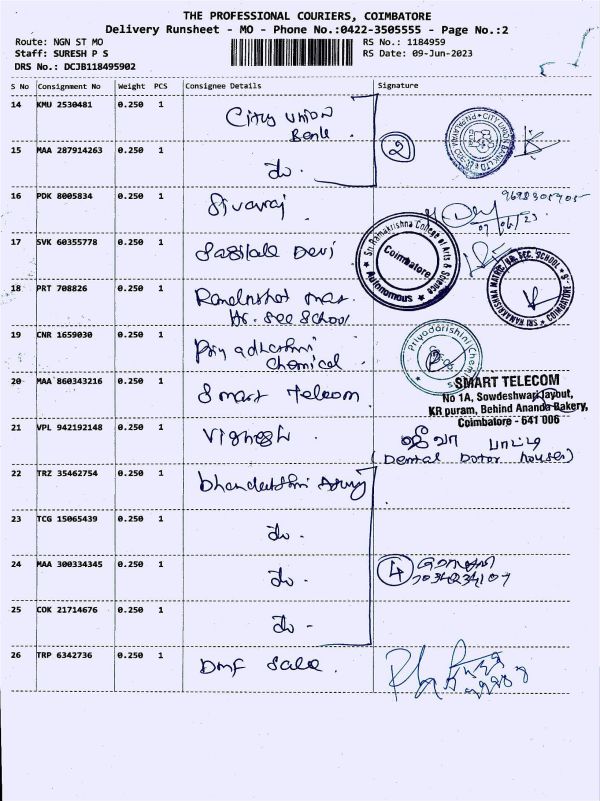 THE PROFESSIONAL COURIERS, COIMBATORE
Delivery Runsheet - MO - Phone No.:0422-3505555 - Page No.:2
Route: NGN ST MO
Staff: SURESH P S
DRS No.: DCJB118495902
RS No.: 1184959
RS Date: 09-Jun-2023
S No Consignment No Weight PCS Consignee Details Signature
14 KMU 2530481 0.250 1 City Union
Bank
15 MAA 287914263 0.250 1 do. 2
16 PDK 8005834 0.250 1 Sivaraj
17 SVK 60355778 0.250 1 Devi
Sri Ramakrishna College of Arts & Science
Coimbatore
Autonomous
18 PRT 708826 0.250 1
Hr. Sec School
19 CNR 1659030 0.250 1 Priyadharshni
Chemical
20 MAA 860343216 0.250 1 Smart Telecom
SMART TELECOM
No 1A, Sowdeshwari layout,
KR puram, Behind Ananda Bakery,
Coimbatore - 641 006
21 VPL 942192148 0.250 1 Vignesh
பாட்டி
(Dental Dotor houses)
22 TRZ 35462754 0.250 1
23 TCG 15065439 0.250 1 do -
24 MAA 300334345 0.250 1 do - 4
25 COK 21714676 0.250 1 do -
26 TRP 6342736 0.250 1 DMF Sale.